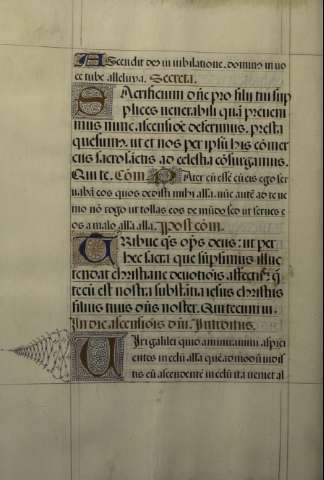 AScendit deus in iubilatione. dominus in uo
ce tube alleluya. Secreta.
SAcrificium dñe pro filij tui sup
plices uenerabili quã preueni
mus nunc ascensiõe deferimus. presta
quesumus. ut et nos per ipsũ his cõmer
cijs sacrosãctis ad celestia cõsurgamus.
Qui te. Cõm PAter cũ essẽ cũ eis ego ser
uabã eos quos dedisti mihi alla. nũc autẽ ad te ue
nio nõ rogo ut tollas eos de mũdo sed ut serues e
os a malo alla alla. Post com.
TRibue qs oĩps deus: ut per
hec sacra que sũpsimus illuc
tendat christiane deuotiõis affectus: quo
tecũ est nostra substãtia iesus christus
filius tuus dñs noster. Qui tecum ui.
In die ascensiõis dñi. Introitus.
UIri galilei quid amiramini aspici
entes in celũ alla quẽadmodũ uidis
tis eũ ascendentẽ in celũ ita ueniet al